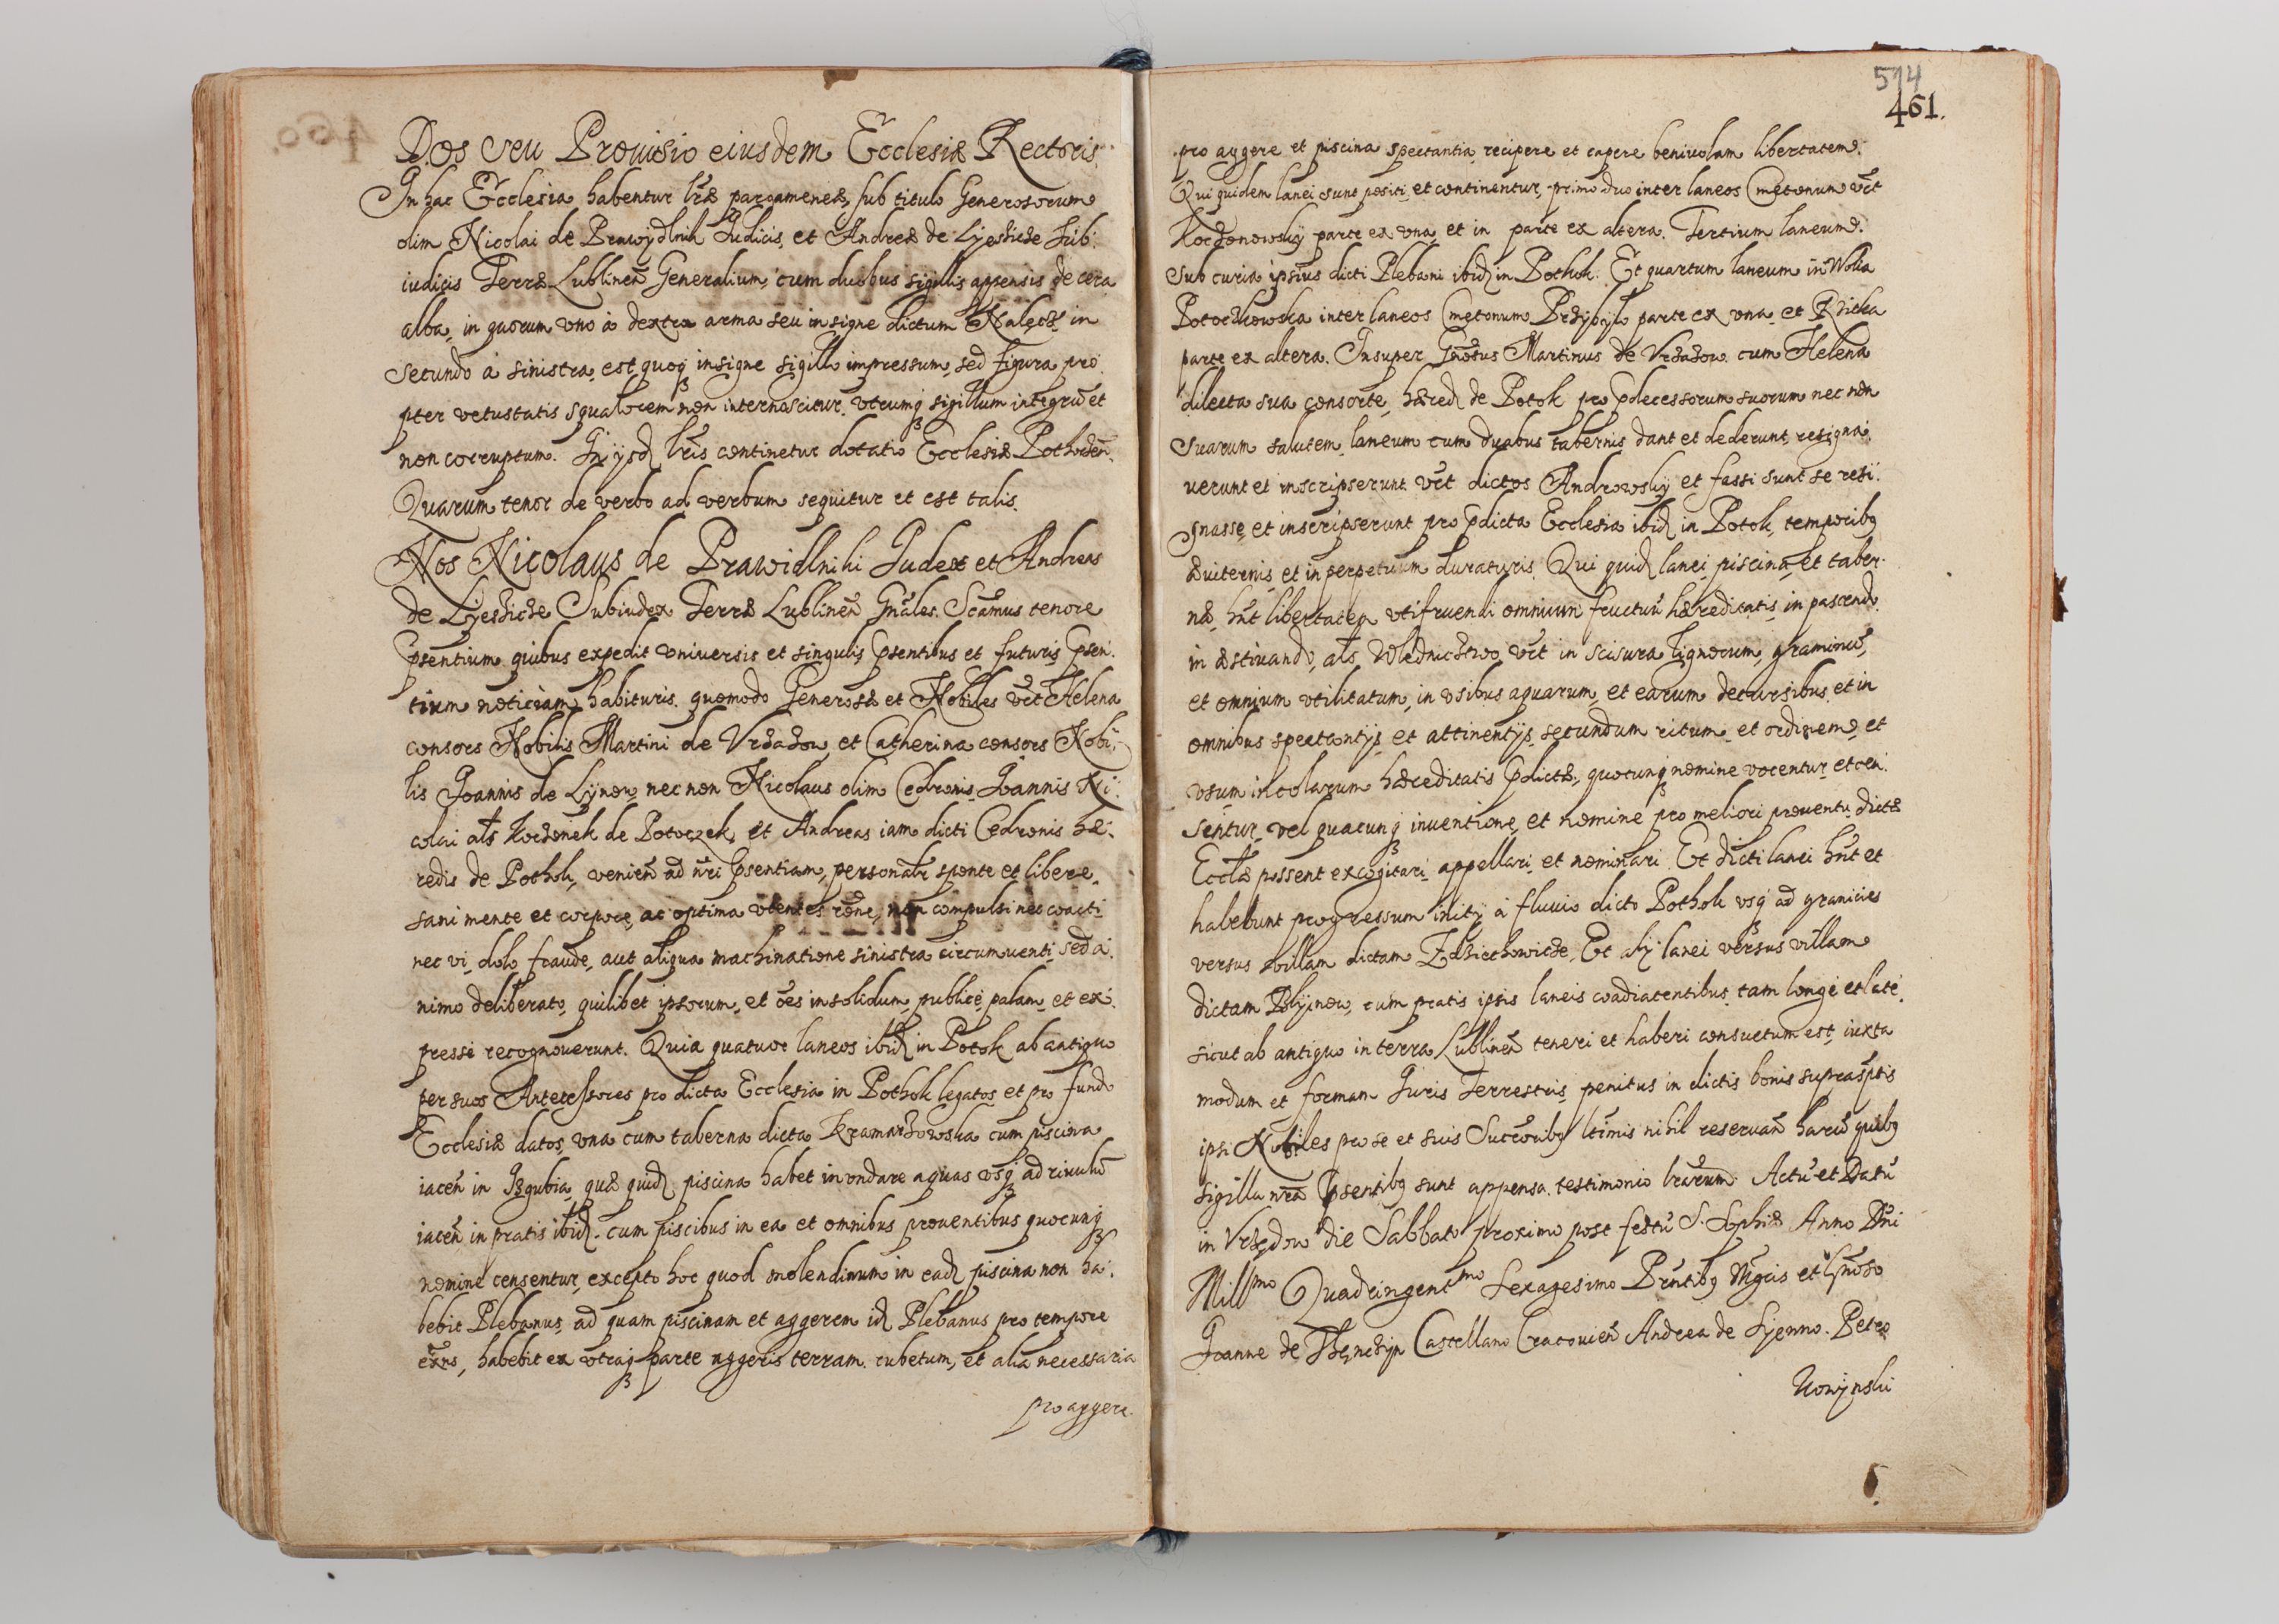 Dos seu Prouisio eiusdem Ecclesiæ Rectoris.
In hac Ecclesia habentur lr̃æ pargameneæ, sub titulo Generosorum
olim Nicolai de Prawydlnik Iudicis, et Andreæ de Lyeshcze Sub:
iudicis Terræ Lublineñ Generalium, cum duobus sigillis appensis de cera
alba, in quorum vno à dextra arma seu insigne dictum Nałęcz, in
secundo à sinistra, est quoq insigne sigillo impressum, sed figura pro:
pter vetustatis squalorem non internoscitur. vtrumq sigillum integrũ et
non corruptum. In ijsd lr̃is continetur dotatio Ecclesiæ Pothocen̄.
Quarum tenor de verbo ad verbum sequitur et est talis.
Nos Nicolaus de Prawidlniki Iudex et Andreas
de Lyeshcze Subiudex Terræ Lublineñ Gñales. Scãmus tenore
p̃sentium quibus expedit vniversis et singulis p̃sentibus et futuris p̃sen:
tium noticiam habituris. quomodo Generosæ et Nobiles vc̃t Helena
consors Nobilis Martini de Vrzazow, et Catherina consors Nobi:
lis Joannis de Lynow, nec non Nicolaus olim Cedronis Joannis Ni:
colai al̃s Koczonek de Potoczek, et Andreas iam dicti Cedronis hæ:
redis de Pothok, venieñ ad nr̃i p̃sentiam, personalr̃ sponte et libere,
sani mente et corpore, ac optima vtentes rõne, non compulsi nec coacti
nec vi, dolo fraude, aut aliqua machinatione sinistra circumuenti, sed a:
nimo deliberato, quilibet ipsorum, et oẽs in solidum, publicè, palam, et ex:
pressè recognouerunt. Quia quatuor laneos ibid in Potok ab antiquo
per suos Antecessores pro dicta Ecclesia in Pothok legatos et pro fundo
Ecclesiæ datos, vna cum taberna dicta Kramarzowska cum piscina
iaceñ in Izgubia, quæ quid piscina habet inondare aquas vsq ad riuulũ
iaceñ in pratis ibid. cum piscibus in ea et omnibus prouentibus quocunq
nomine censentur, excepto hoc quod molendinum in ead piscina non ha:
bebit Plebanus, ad quam piscinam et aggerem id Plebanus pro tempore
exñs, habebit ex vtraq parte aggeris terram. rubetum, et alia necessaria
pro aggere.
514
461.
pro aggere et piscina spectantia recipere et capere beniuolam libertatem.
Qui quidem lanei sunt positi et continentur, primo duo inter laneos Cmetonum vc̃t
Koczonowskÿ parte ex vna, et in parte ex altera. Tertium laneum
sub curia ipsius dicti Plebani ibid in Pothok. Et quartum laneum in Wolia
Potoczkowska inter laneos Cmetonum Przybylo parte ex vna, et Rzieka
parte ex altera. Insuper Gñosus Martinus de Vrzazow cum Helena
dilecta sua consorte, hæred de Potok pro p̃decessorum suorum nec non
suarum salutem, laneum cum duabus tabernis dant et dederunt, resigna:
uerunt et inscripserunt vc̃t dictos Androwskÿ et fassi sunt se resi:
gnasse, et inscripserunt pro p̃dicta Ecclesia ibid in Potok, temporibq
æuiternis et in perpetuum duraturis. Qui quid lanei piscina, et taber:
næ, hñt libertatem vtifruendi omnium fructuũ hæreditatis, in pascendo
in æstiuando, al̃s Wlednicztwo vc̃t in scisura lignorum, graminũ,
et omnium vtilitatum, in vsibus aquarum, et earum decursibus, et in
omnibus spectantijs et attinentijs, secundum ritum et ordinem et
vsum incolarum hæreditatis p̃dictæ, quocunq nomine vocentur, et cen:
sentur, vel quacunq inuentione, et nomine pro meliori prouentu dictæ
Eccl̃æ possent excogitari appellari, et nominari. Et dicti lanei hñt et
habebunt progressum initÿ à fluuio dicto Pothok vsq ad granicies
versus villam dictam Zdziechowicze, Et alÿ lanei versus villam
dictam Blÿnow, cum pratis ipsis laneis coadiacentibus, tam longè et latè,
sicut ab antiquo in terra Lublineñ teneri et haberi consuetum est, iuxta
modum et formam Iuris Terrestris, penitus in dictis bonis suprasp̃tis
ipsi Nobiles pro se et suis Succ̃oribq ltĩmis nihil reseruañ harũ quibq
sigilla nr̃a p̃sentibq sunt appensa. testimonio lr̃arum. Actũ et Datũ
in Vrzędow die Sabbato proximo post festũ S. Sophiæ Anno Dñi
Mill^mo Quadringent^mo Sexagesimo Prñtibq Mg̃cis et Gñoso
Joanne de Thęnczijn Castellano Cracouieñ Andrea de Syenno. Petro
Uowÿnski